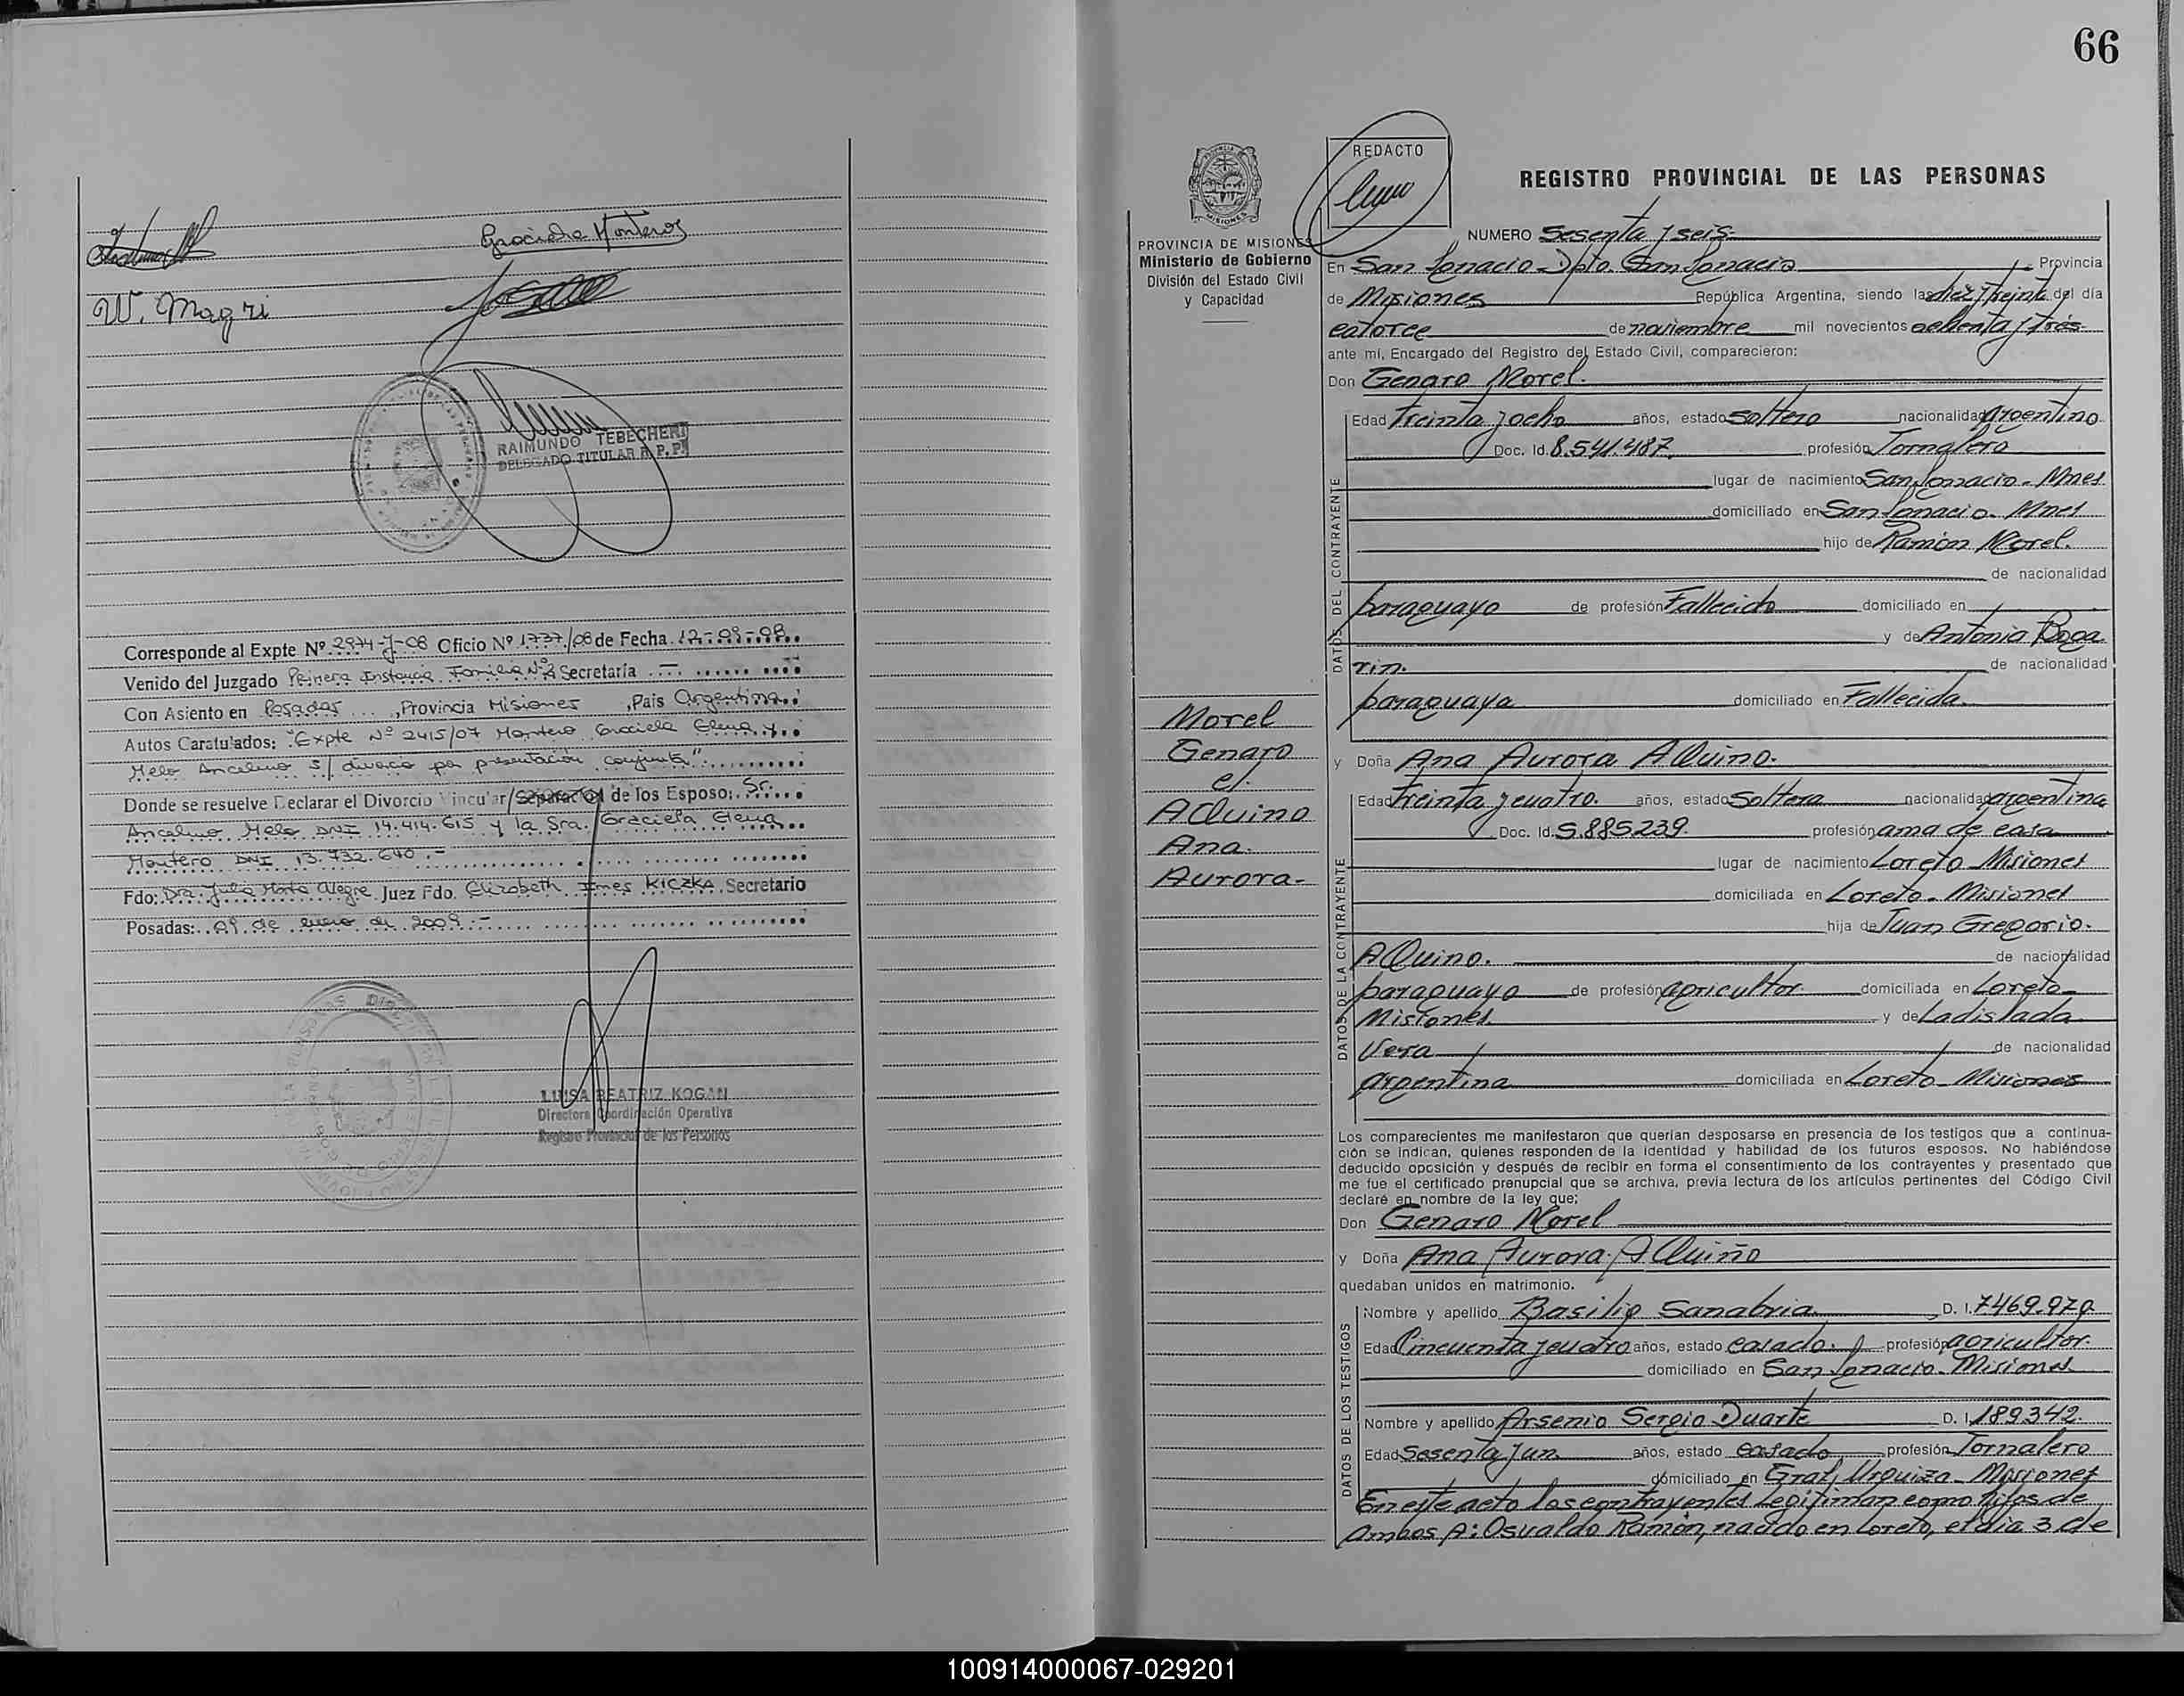 Graciela Monteros
W. Magri
RAIMUNDO TEBECHERI
DELEGADO TITULAR R. P. P.
Corresponde al Expte Nº 2974-J-08 Oficio Nº 1737/08 de Fecha 12-09-08
Venido del Juzgado Primera Instancia Familia Nº2 Secretaría —
Con Asiento en Posadas, Provincia Misiones, País Argentina
Autos Caratulados: "Expte Nº 2415/07 Montero Graciela Elena y
Melo Ancelmo s/ divorcio por presentación conjunta"
Donde se resuelve Declarar el Divorcio Vincular/Separación de los Esposo: Sr.
Ancelmo Melo DNI 14.414.615 y la Sra. Graciela Elena
Montero DNI 13.732.640.-
Fdo: Dra. Julia Marta Alegre Juez Fdo. Elizabeth Ines KICZKA Secretario
Posadas: 09 de enero de 2009.-
LUISA BEATRIZ KOGAN
Directora Coordinación Operativa
Registro Provincial de las Personas
66
PROVINCIA DE MISIONES
Ministerio de Gobierno
División del Estado Civil
y Capacidad
REDACTO
REGISTRO PROVINCIAL DE LAS PERSONAS
NUMERO Sesenta y seis
En San Ignacio Dpto. San Ignacio Provincia
de Misiones República Argentina, siendo las diez y treinta del día
catorce de noviembre mil novecientos ochenta y tres
ante mí, Encargado del Registro del Estado Civil, comparecieron:
Don Genaro Morel.
DATOS DEL CONTRAYENTE
Edad treinta y ocho años, estado soltero nacionalidad argentino
Doc. Id. 8.541.487 profesión Jornalero
lugar de nacimiento San Ignacio - Mnes
domiciliado en San Ignacio - Mnes
hijo de Ramón Morel.
de nacionalidad
paraguayo de profesión Fallecido domiciliado en
y de Antonia Boga
rin. de nacionalidad
paraguaya domiciliado en Fallecida.
Morel
Genaro
c/.
AQuino
Ana
Aurora-
y Doña Ana Aurora AQuino.
DATOS DE LA CONTRAYENTE
Edad treinta y cuatro. años, estado Soltera nacionalidad argentina
Doc. Id. 5.885.239. profesión ama de casa
lugar de nacimiento Loreto Misiones
domiciliada en Loreto - Misiones
hija de Juan Gregorio.
AQuino. de nacionalidad
paraguayo de profesión agricultor domiciliada en Loreto
Misiones. y de Ladislada
Vera de nacionalidad
argentina domiciliada en Loreto - Misiones
Los comparecientes me manifestaron que querían desposarse en presencia de los testigos que a continua-
ción se indican, quienes responden de la identidad y habilidad de los futuros esposos. No habiéndose
deducido oposición y después de recibir en forma el consentimiento de los contrayentes y presentado que
me fue el certificado prenupcial que se archiva, previa lectura de los artículos pertinentes del Código Civil
declaré en nombre de la ley que:
Don Genaro Morel
y Doña Ana Aurora AQuiño
quedaban unidos en matrimonio.
DATOS DE LOS TESTIGOS
Nombre y apellido Basilio Sanabria D. I. 7469.970
Edad Cincuenta y cuatro años, estado casado. profesión agricultor.
domiciliado en San Ignacio - Misiones
Nombre y apellido Arsenio Sergio Duarte D. I. 189342.
Edad Sesenta y un años, estado casado profesión Jornalero
domiciliado en Gral. Urquiza - Misiones
En este acto los contrayentes Legitiman como hijos de
ambos A: Osvaldo Ramón, nacido en Loreto, el día 3 de
100914000067-029201